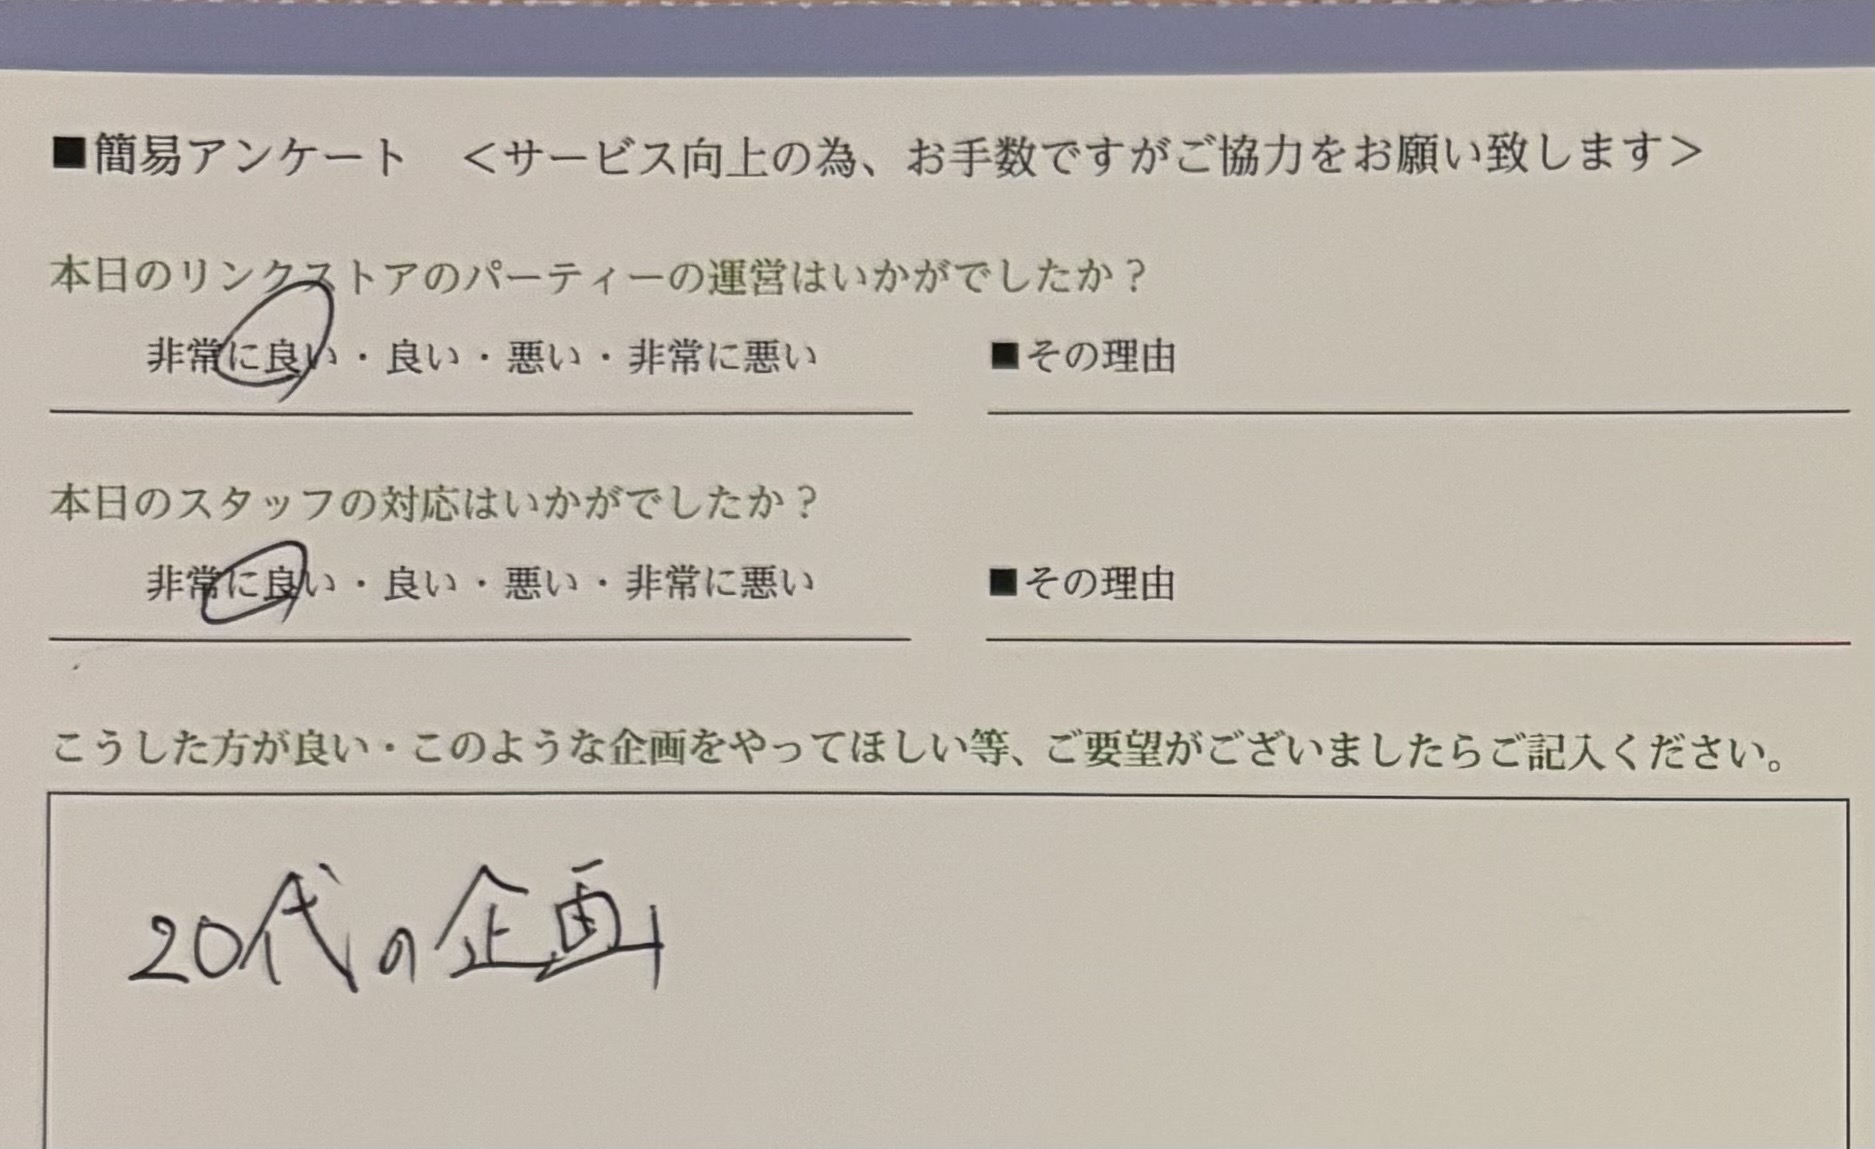 ■簡易アンケート　＜サービス向上の為、お手数ですがご協力をお願い致します＞
本日のリンクストアのパーティーの運営はいかがでしたか？
非常に良い・良い・悪い・非常に悪い　■その理由
本日のスタッフの対応はいかがでしたか？
非常に良い・良い・悪い・非常に悪い　■その理由
こうした方が良い・このような企画をやってほしい等、ご要望がございましたらご記入ください。
20代の企画